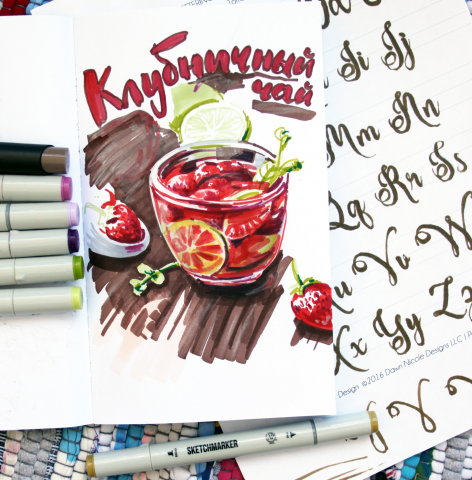 Клубничный
чай
Ii Jj
Mm Nn
Qq Rr Ss
Uu Vv W
Xx Yy Zz
Design ©2016 Dawn Nicole Designs LLC | P
SKETCHMARKER